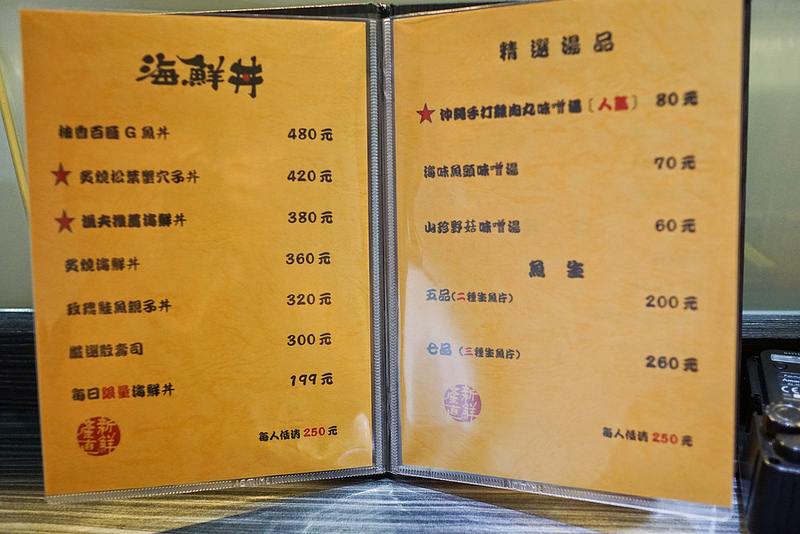 海鮮丼
柚香百匯G魚丼 480元
★ 炙燒松葉蟹穴子丼 420元
★ 漁夫推薦海鮮丼 380元
炙燒海鮮丼 360元
玫瑰鮭魚親子丼 320元
嚴選散壽司 300元
每日限量海鮮丼 199元
新鮮產直
每人低消250元
精選湯品
★ 沖繩手打雞肉丸味噌湯〔人氣〕 80元
海味魚頭味噌湯 70元
山珍野菇味噌湯 60元
魚生
五品(二種生魚片) 200元
七品(三種生魚片) 260元
新鮮產直
每人低消250元